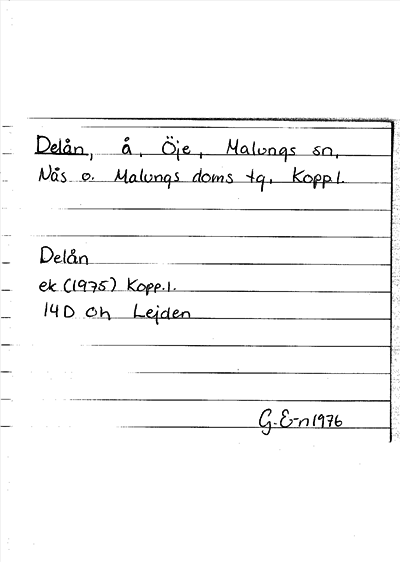 Delån, å, Öje, Malungs sn,
Nås o. Malungs doms tg, Kopp.l.
Delån
ek (1975) Kopp.l.
14D 0h Lejden
G. E-n 1976